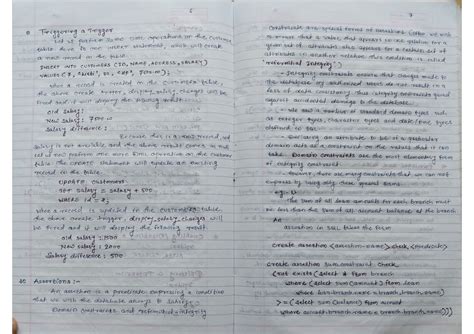 6
Triggering a Trigger
Let us perform some DML operations on the customers
table. Here is one INSERT statement, which will create
a new record in the table.
INSERT INTO CUSTOMERS (ID, NAME, ADDRESS, SALARY)
When a record is created in the CUSTOMERS table,
the above create trigger, display_salary_changes will be
fired and it will display the following result
Old salary:
New Salary: 7500
Salary difference:
Because this is a new record, old
salary is not available and the above result comes as null.
Let us now perform one more DML operation on the customers
table. The UPDATE statement will update an existing
record in the table.
UPDATE customers
SET salary = salary + 500
WHERE id = 2;
When a record is updated in the CUSTOMERS table,
the above create trigger, display_salary_changes will
be fired and it will display the following result
Old salary: 1500
New Salary: 2000
Salary difference: 500
Assertions :-
An assertion is a predicate expressing a condition
that we wish the database always to satisfy.
Domain constraints and referential integrity
7
constraints are special forms of assertions
to ensure that a value that appears in one relation for a
given set of attributes also appears for a certain set of
attributes in another relation. This condition is called
'referential integrity'
Integrity constraints ensure that changes made to
the database by authorized users do not result in a
loss of data consistency. Thus, integrity constraints guard
against accidental damage to the database.
a number of standard domain types, such
as integer types, character types and date/time types
defined in SQL
an attribute to be of a particular
domain acts as a constraint on the values that it can
take. Domain constraints are the most elementary form
of integrity constraint
However, there are many constraints that we can not
express by using only these special forms.
The sum of all loan amounts for each branch must
be less than the sum of all account balances at the branch.
assertion in SQL takes the form
create assertion <assertion-name> check <predicate>
create assertion sum_constraint check
(not exists (select * from branch
where (select sum(amount) from loan
where loan.branch_name = branch.branch_name)
>= (select sum(balance) from account
where account.branch_name = branch.branch_name)))